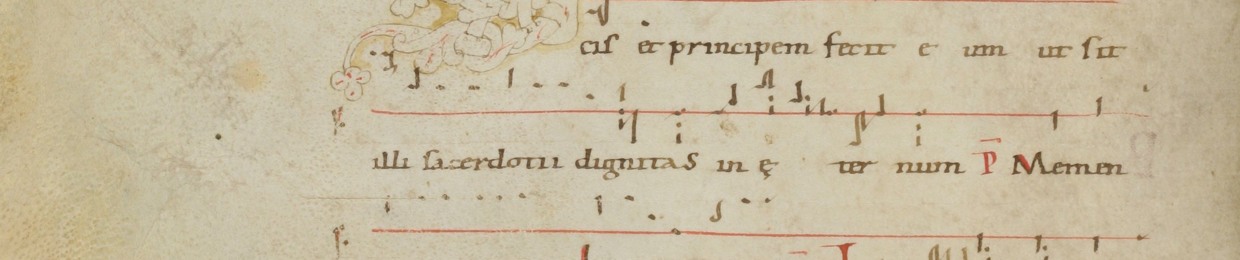 cis et principem fecit e um ut sit
illi sacerdotii dignitas in ę ter num P̄ Memen